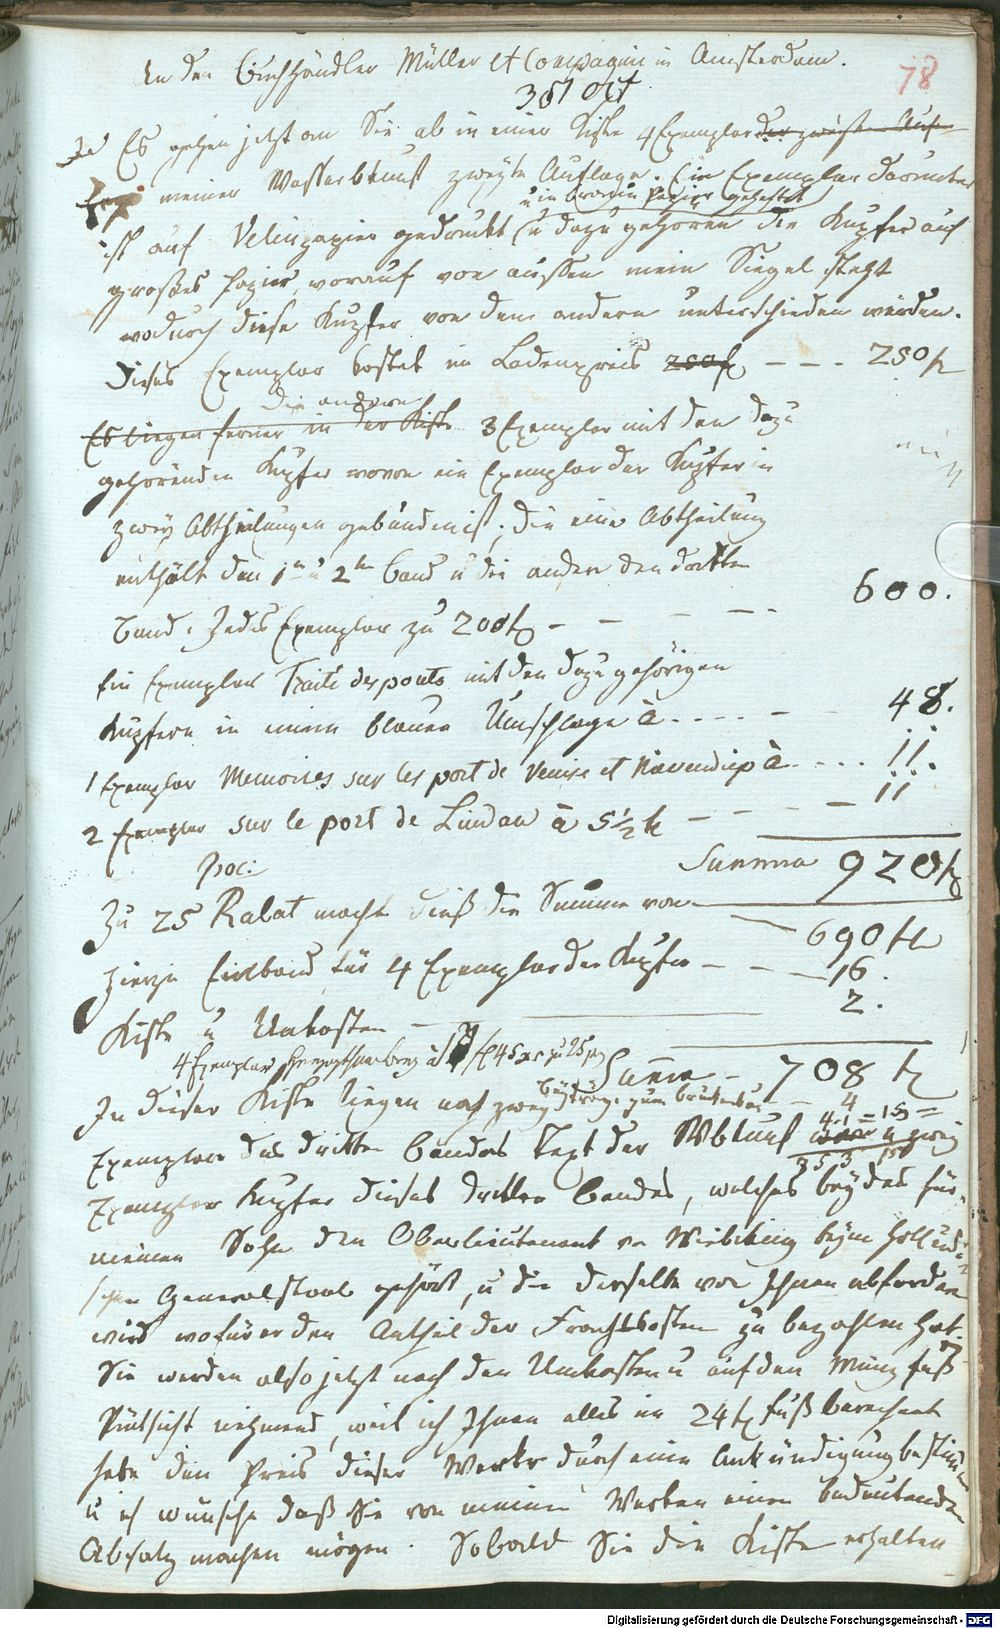 An den Buchhändler Müller et Compagnie in Amsterdam.
78
3st Oct
Es gehen jetzt an Sie ab in einer Kiste 4 Exemplar der zweyten Aufl
meiner Wasserbkunst zweyte Auflage. Ein Exemplar darunter
u in braun Papier geheftet
ist auf Velinpapier gedruckt u dazu gehören die Kupfer auf
großes Papier, worauf von aussen mein Siegel steht
wodurch diese Kupfer von den andern unterschieden werden.
Dieses Exemplar kostet im Ladenpreis 250 f - - - 250 f
die andern
Es liegen ferner in der Kiste 3 Exemplar mit den dazu
gehörenden Kupfer wovon ein Exemplar der Kupfer in
zwey Abtheilungen gebunden ist, die eine Abtheilung
enthält den 1n u 2tn Band u die andere den dritten
Band. Jedes Exemplar zu 200 f - - - - 600.
Ein Exemplar Traité des ponts mit den dazu gehörigen
Kupfern in einem blauen Umschlage à - - - - 48.
1 Exemplar Memoires sur les port de Venise et Nieuwdiep à - - - 11.
2 Exemplar sur le port de Lindau à 5 1/2 f - - - 11
Summa 920 f
Proc:
Zu 25 Rabat macht dieß die Summe von - 690 f
Hierzu Einband für 4 Exemplar der Kupfer - - - 16.
Kiste u Unkosten - 2.
4 Exemplar
Suma - 708 f
beyträge zum Brückenbau - - 4
In dieser Kiste liegen noch zwey
Exemplare des dritten Bandes Text der Wbkunst u zwey
Exemplar Kupfer dieses dritten Bandes, welches beydes für
meinen Sohn den Oberlieutenant v Wiebeking beym Holländi
schen Generalstaab gehört, u die derselbe von Ihnen abfordern
wird wofür er den Antheil der Frachtkosten zu bezahlen hat.
Sie werden also jetzt nach den Unkosten u auf den Münzfuß
Rücksicht nehmend, weil ich Ihnen alles im 24 f Fuß berechnet
habe den Preis dieser Werke durch eine Ankündigung bestimmen
u ich wünsche daß Sie von meinen Werken einen bedeutenden
Absatz machen mögen. Sobald Sie die Kiste erhalten
Digitalisierung gefördert durch die Deutsche Forschungsgemeinschaft - DFG